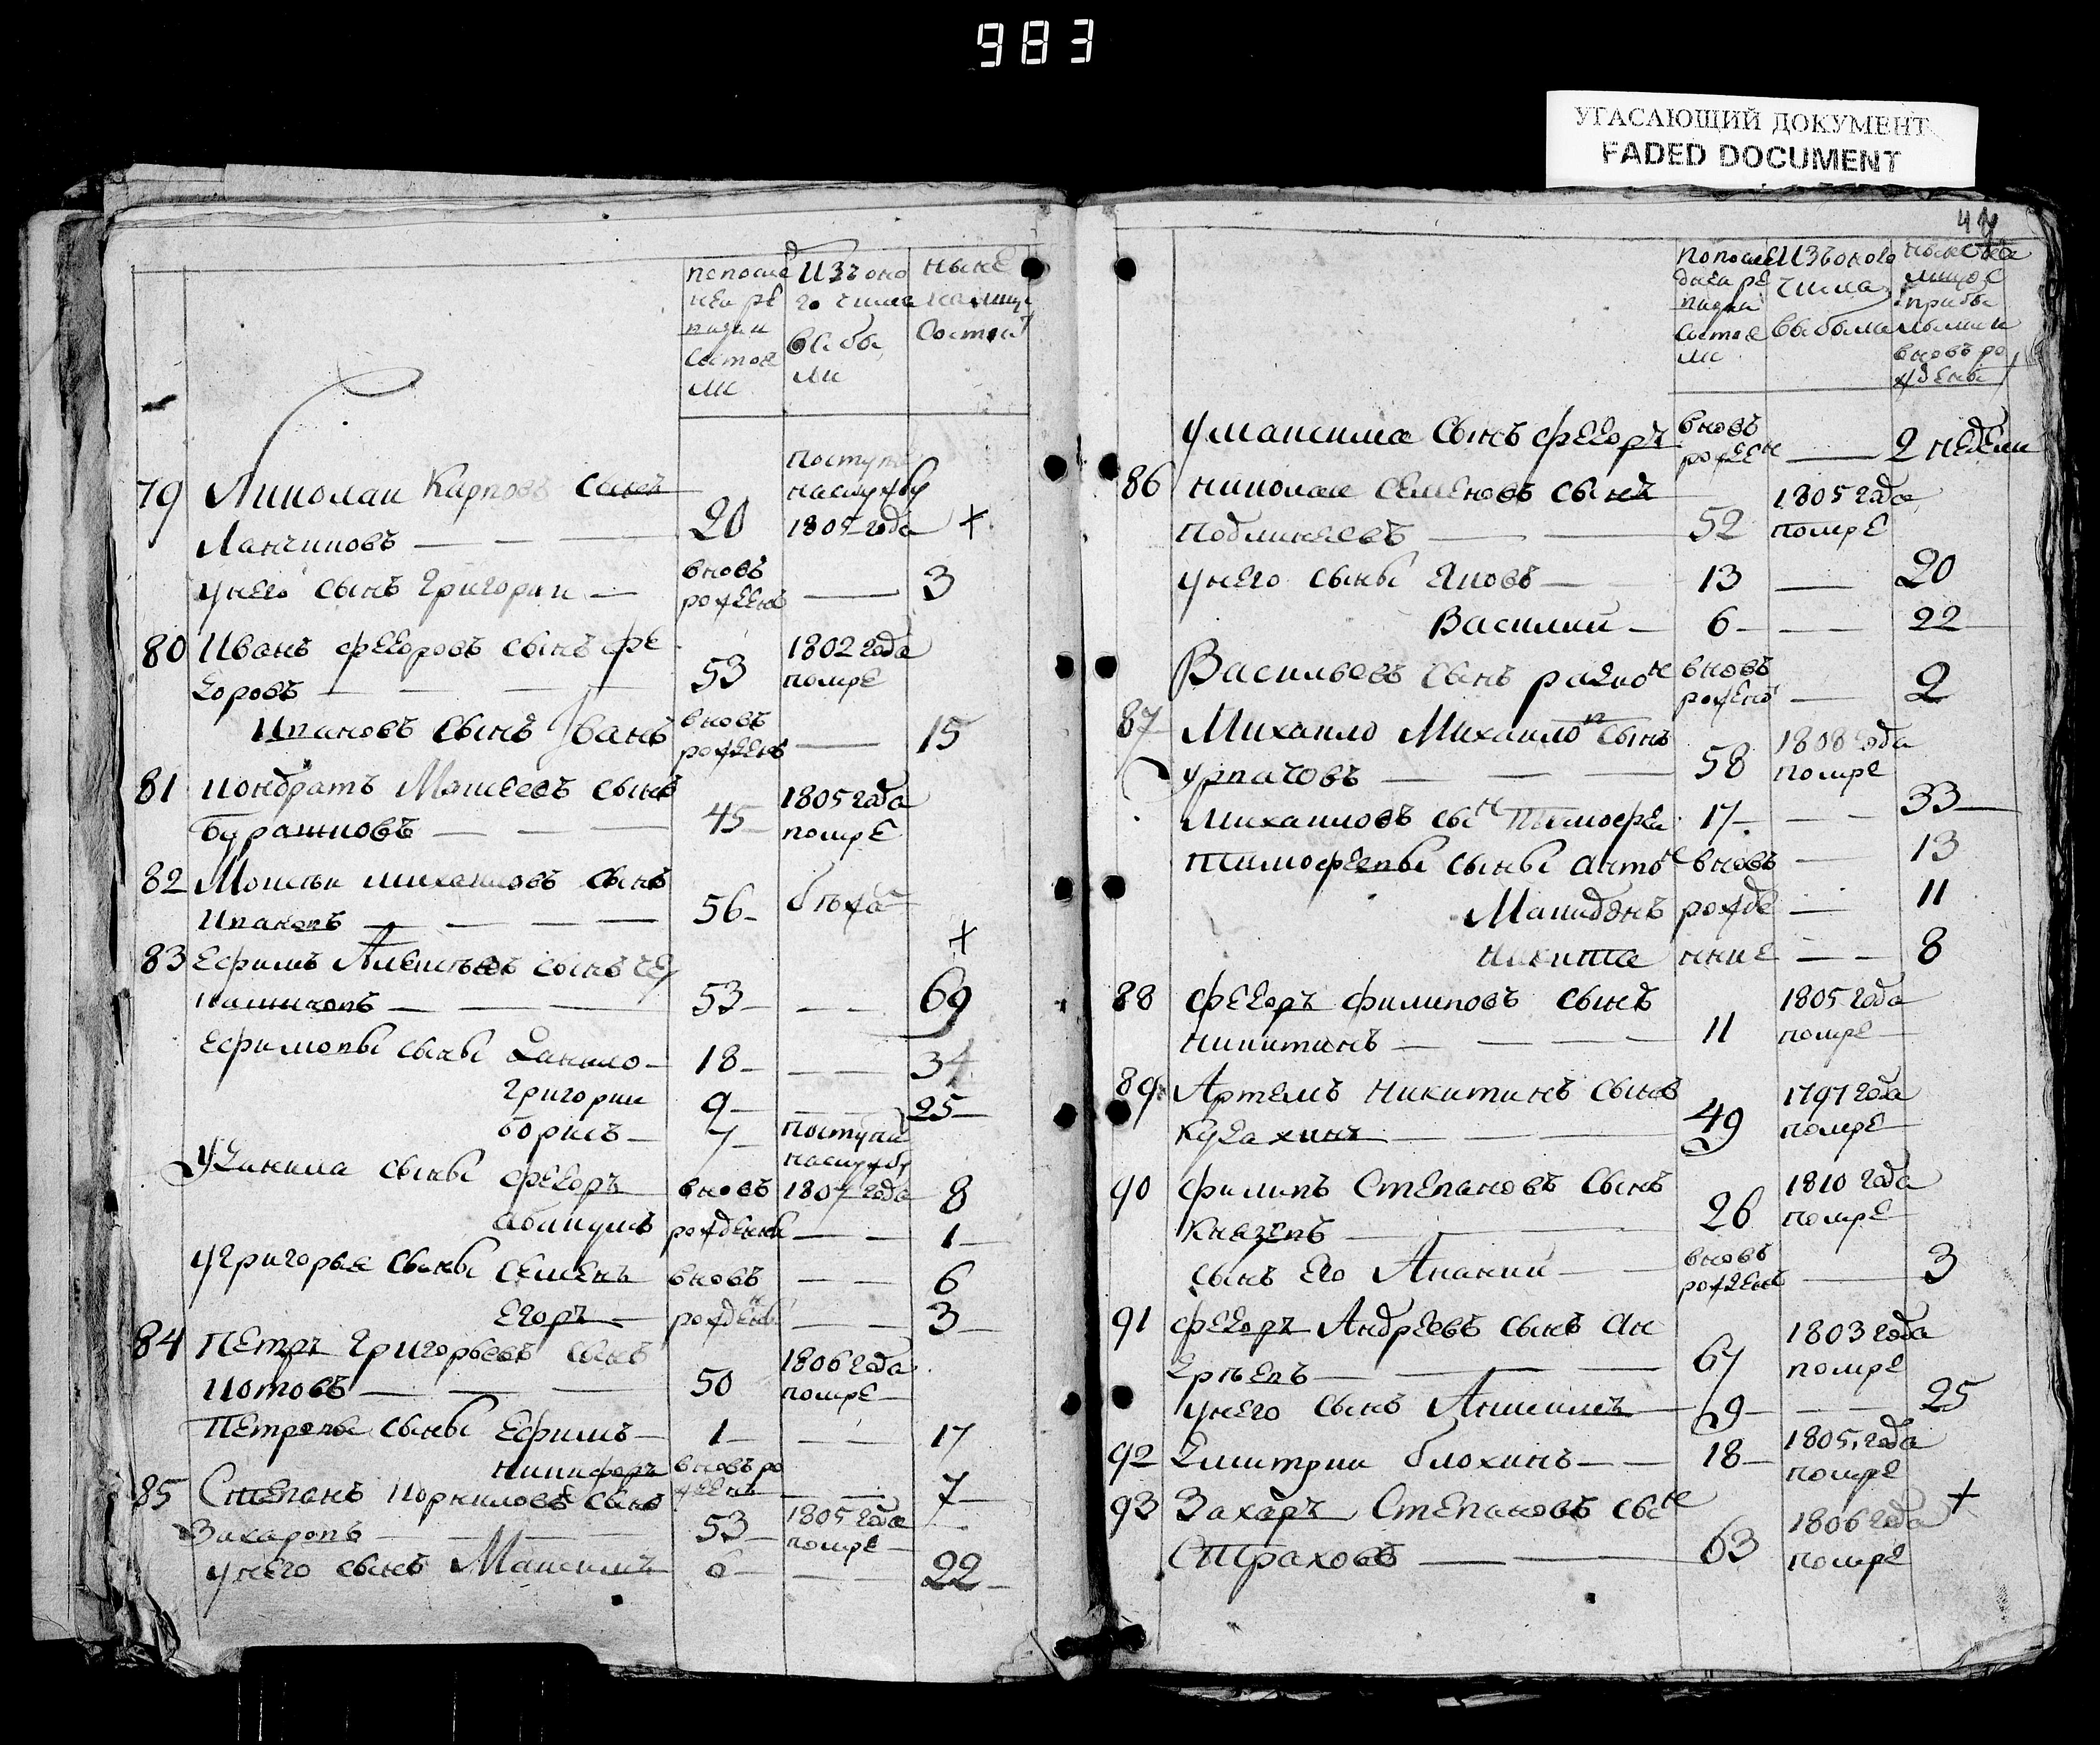 983
УГАСАЮЩИЙ ДОКУМЕНТ
FADED DOCUMENT
попослед
ней ре
визии
состоя
ли
Изъ оно
го числа
выбы
ли
ныне
налицо
состоит
79 Николаи Карповъ сынъ
Ланчиковъ — 20 поступи наслужбу 1805 года +
унего сынъ Григории — вновь рожденъ — 3
80 Иванъ федоровъ сынъ фе
доровъ — 53 1802 года помре
Ивановъ сынъ Иванъ вновь рожденъ — 15
81 Кондратъ Моисеевъ сынъ
Бурашковъ — 45 1805 года помре
82 Моисеи михаиловъ сынъ
Ивановъ — 56 +
83 Ефимъ Алексѣевъ сынъ
53 — 69
Ефимовы сыны Данило — 18 — 34
Григории 9 — 25
борисъ — 7 поступи наслужбу 1807 года
уДанила сыны федоръ вновь 8
авакумъ рождены — 1
уГригорья сыны семенъ вновь — 6
Егоръ — рождены — 3
84 Петръ Григорьевъ сынъ
Котовъ — 50 1806 года помре
Петровы сыны Ефимъ — 1 — 17
Никифоръ вновь рожденъ — 7
85 Степанъ Корниловъ сынъ
Захаровъ 53 1805 года помре
унего сынъ Максимъ 6 — 22
попосле
дней ре
визии
состоя
ли
Изъоного
числа
выбыли
прибы
лыми и
вновь ро
жденны
умаксима сынъ федоръ вновь рожден — 2 недели
86 николаи семеновъ сынъ
Подкинеевъ — 52 1805 года помре
унего сыны Яковъ — 13 — 20
Василий — 6 — 22
Васильевъ сынъ радион вновь рожденъ — 2
87 Михаило Михаилов сынъ
урпаговъ — 58 1808 года помре
михаиловъ сын тимофеи 17 — 33
тимофеевы сыны антон вновь — 13
Макидонъ рожде — 11
никита нние — 8
88 федоръ филиповъ сынъ
никитинъ — 11 1805 года помре
89 Артемъ никитинъ сынъ
Кудахинъ — 49 1797 года помре
90 филипъ Степановъ сынъ
Князевъ — 26 1810 года помре
сынъ его Ананий — вновь рожденъ — 3
91 федоръ Андреевъ сынъ ан
дрѣевъ — 67 1803 года помре
унего сынъ Анисимъ — 9 — 25
92 Дмитрии блохинъ — 18 — 1805 года помре
93 Захаръ Степановъ сын
Страховъ — 63 1806 года помре +